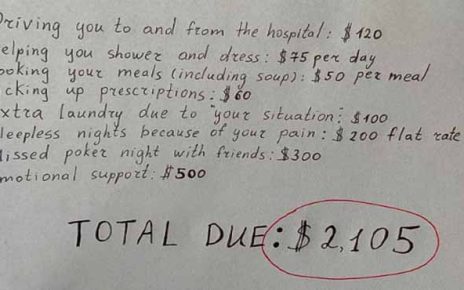 riving you to and from the hospital: $120
elping you shower and dress: $75 per day
ooking your meals (including soup): $50 per meal
cking up prescriptions: $60
xtra laundry due to "your situation": $100
leepless nights because of your pain: $200 flat rate
issed poker night with friends: $300
motional support: $500
TOTAL DUE: $2,105